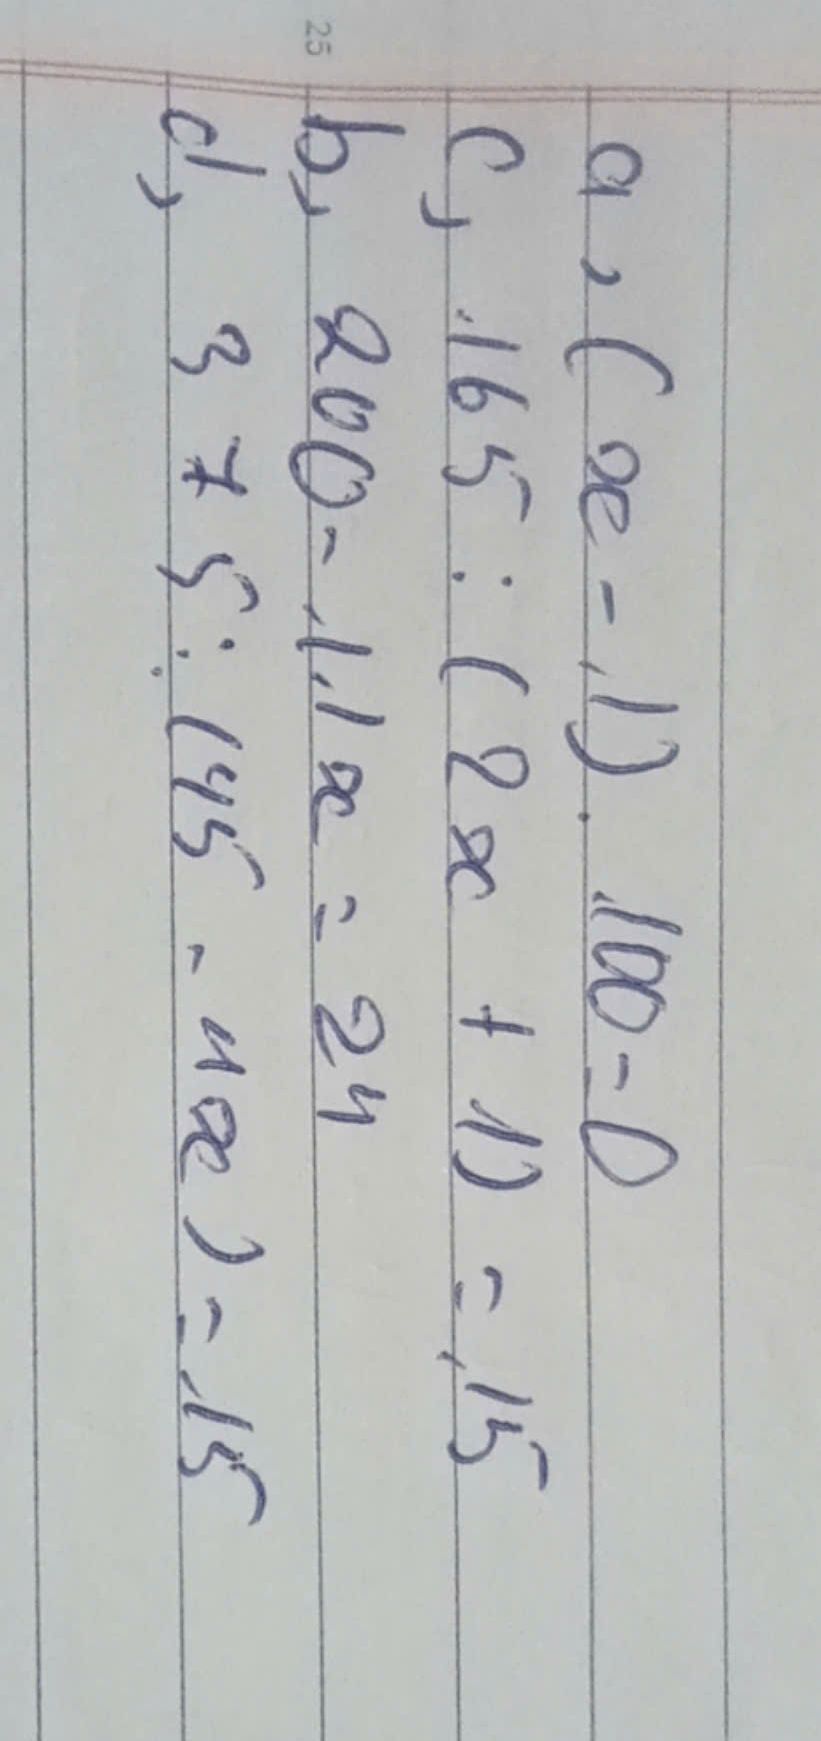 a, (x - 1). 100 = 0
c, 165 : (2x + 1) = 15
25
b, 200 - 11x = 24
d, 375 : (45 - 4x) = 15